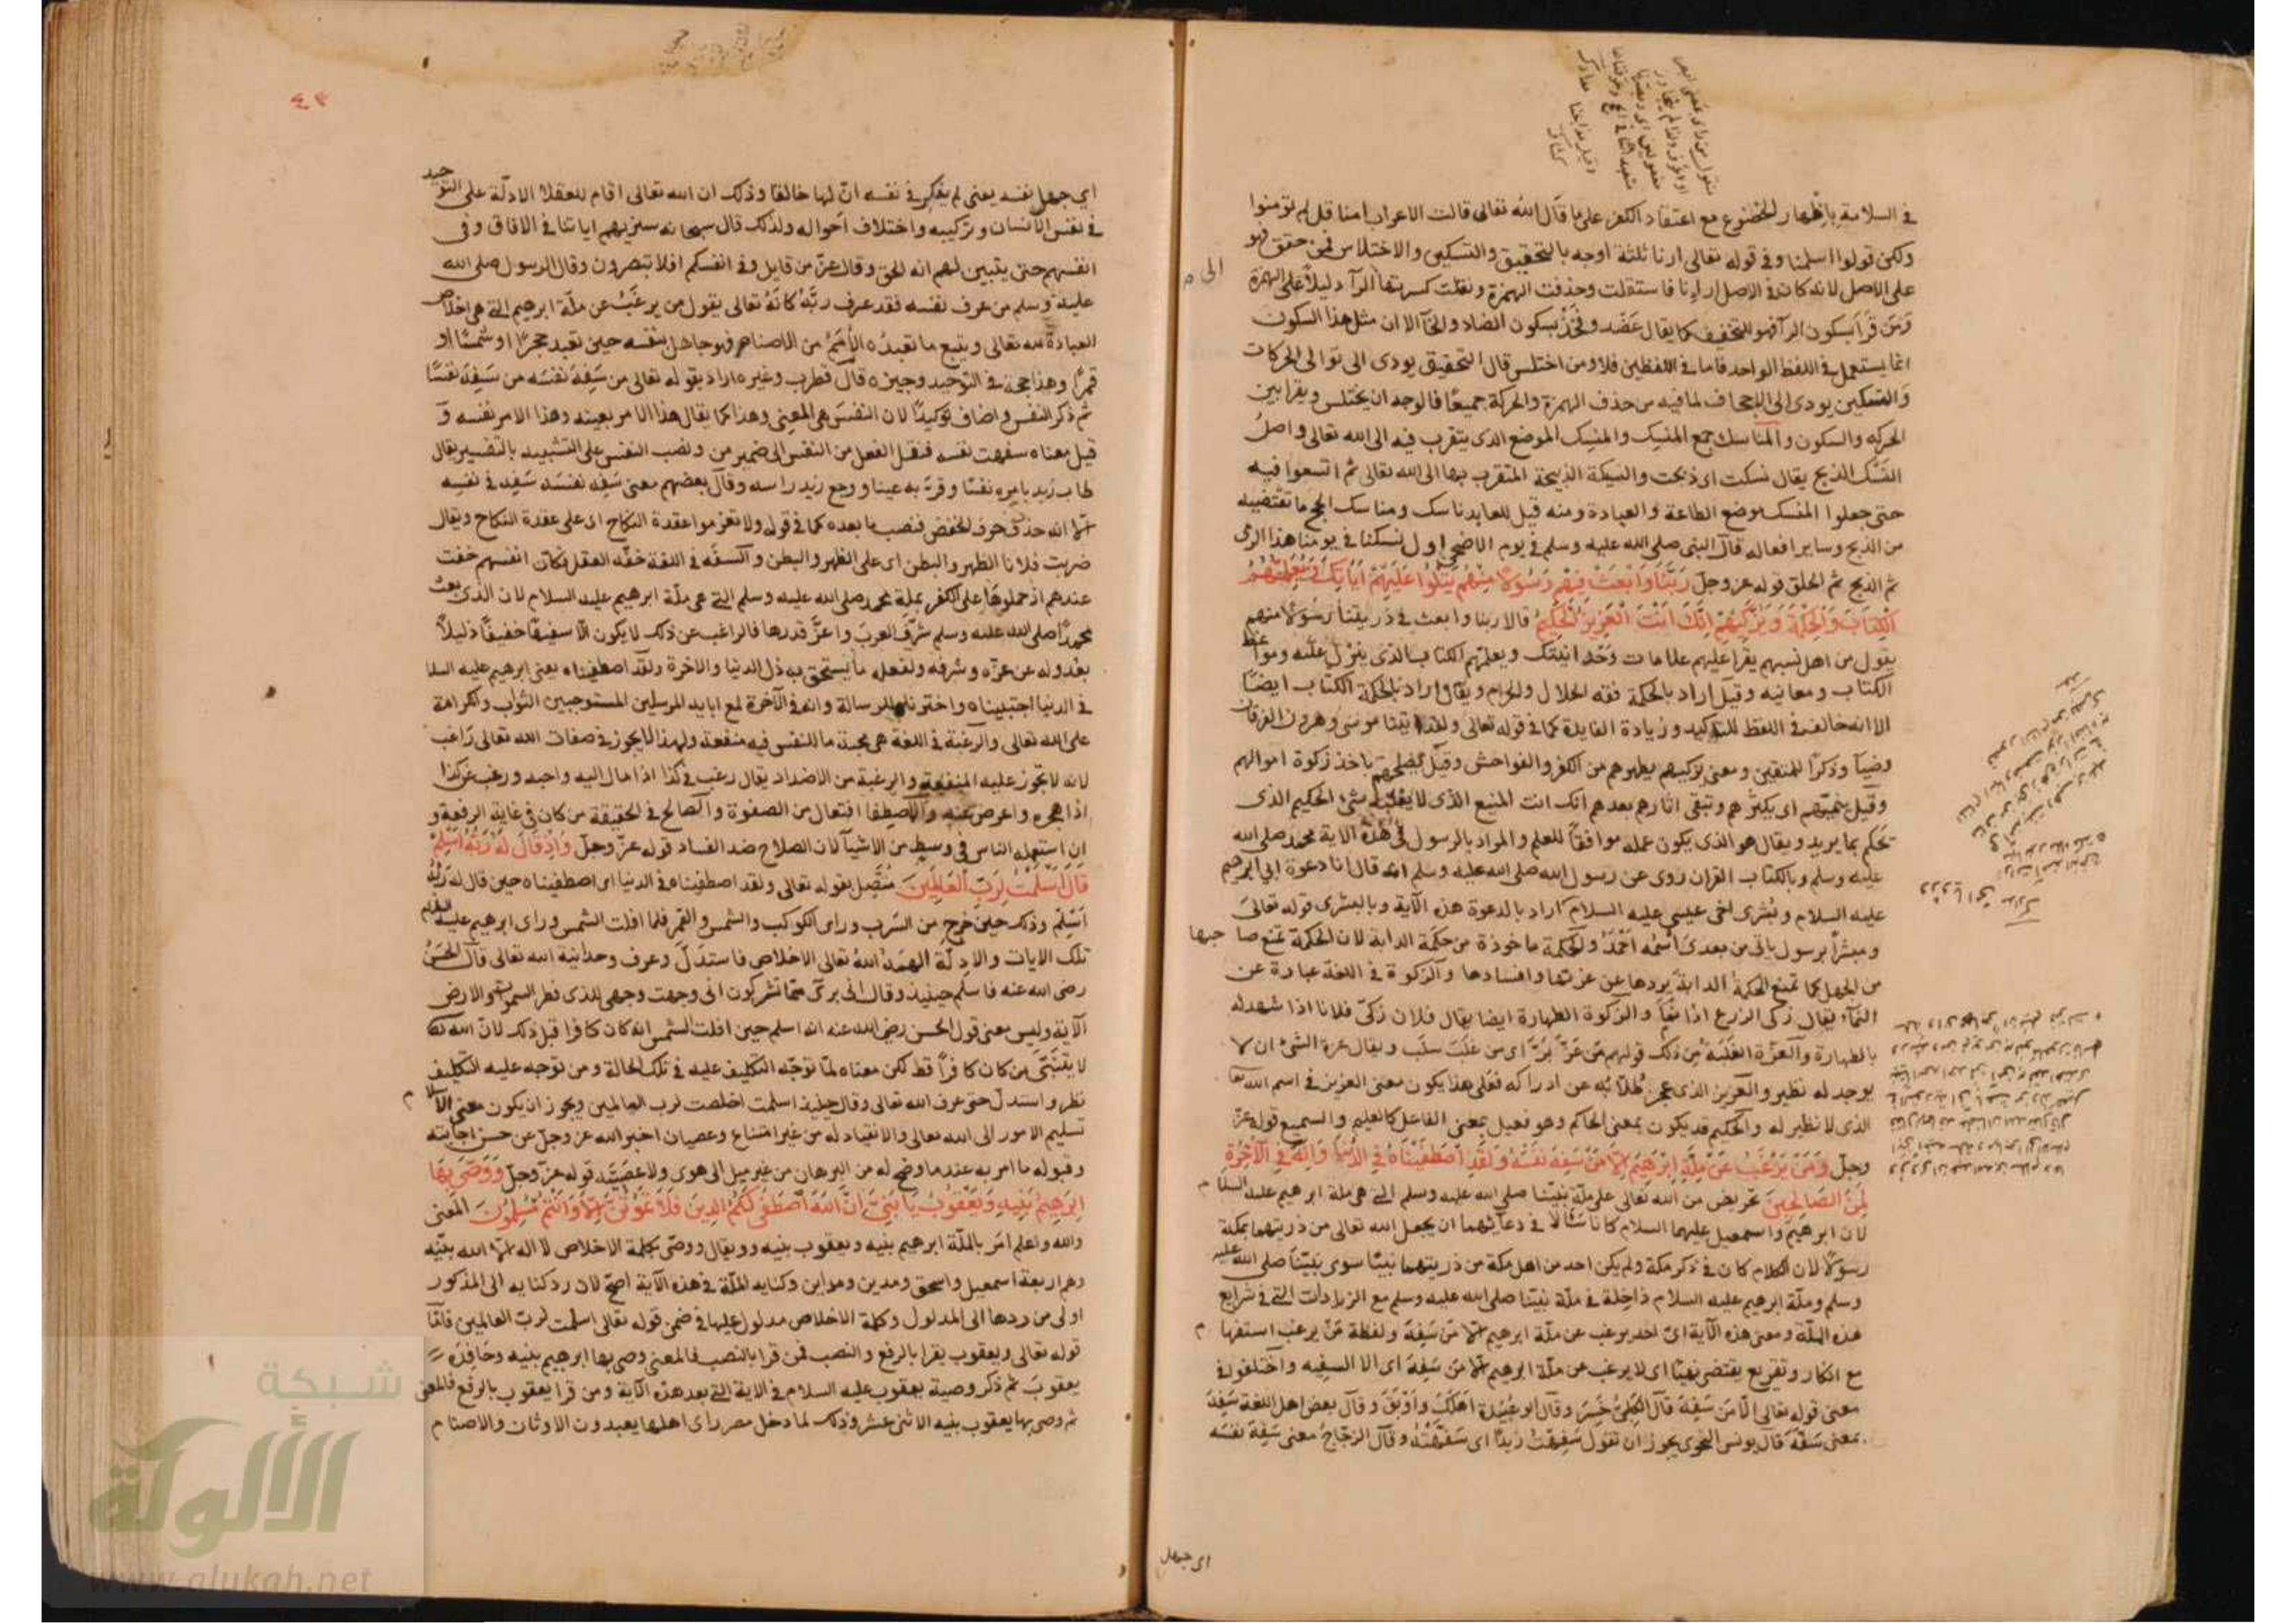 في السلامة باظهار الخضوع مع اعتقاد الكفر على ما قال الله تعالى قالت الاعراب امنا قل لم تؤمنوا
ولكن قولوا اسلمنا وفي قوله تعالى ارنا ثلثة اوجه بالتحقيق والتسكين والاختلاس فمن حقق فهو
على الاصل لانه كان في الاصل ارانا فاستثقلت وحذفت الهمزة ونقلت كسرتها الى الرآ دليلاً على الهمزة
ومن قرا بسكون الرآ فهو للتخفيف كما يقال عضد وفخذ بسكون الضاد والخآ الا ان مثل هذا السكون
انما يستعمل في اللفظ الواحد فاما في اللفظين فلا ومن اختلس قال التحقيق يودى الى توالى الحركات
والتسكين يودى الى الاجحاف لما فيه من حذف الهمزة والحركة جميعًا فالوجه ان يختلس ويقرا بين
الحركه والسكون والمناسك جمع المنسك والمنسك الموضع الذى يتقرب فيه الى الله تعالى واصل
النسك الذبح يقال نسكت اى ذبحت والنسيكة الذبيحة المتقرب بها الى الله تعالى ثم اتسعوا فيه
حتى جعلوا المنسك موضع الطاعة والعبادة ومنه قيل للعابد ناسك ومناسك الحج ما تقتضيه
من الذبح وساير افعاله قال النبى صلى الله عليه وسلم في يوم الاضحى اول نسكنا في يومنا هذا الرمى
ثم الذبح ثم الحلق قوله عز وجل ربنا وابعث فيهم رسولا منهم يتلوا عليهم اياتك ويعلمهم
الكتاب والحكمة ويزكيهم انك انت العزيز الحكيم قالا ربنا وابعث في ذريتنا رسولا منهم
يقول من اهل نسبهم يقرا عليهم علامات وحدانيتك ويعلمهم الكتاب الذى ينزل عليه ومواعظ
الكتاب ومعانيه وقيل اراد بالحكمة فقه الحلال والحرام ويقال اراد بالحكمة الكتاب ايضًا
الا انه خالف في اللفظ للتاكيد وزيادة الفايدة كما في قوله تعالى ولقد اتينا موسى وهرون الفرقان
وضيآ وذكرًا للمتقين ومعنى يزكيهم يطهرهم من الكفر والفواحش وقيل يصلحهم باخذ زكوة اموالهم
وقيل ينميهم اى يكثرهم وتبقى اثارهم بعدهم انك انت المنيع الذى لا يغلبه شئ الحكيم الذى
تحكم بما يريد ويقال هو الذى يكون عمله موافقا للعلم والمراد بالرسول في هذه الاية محمد صلى الله
عليه وسلم وبالكتاب القران روى عن رسول الله صلى الله عليه وسلم انه قال انا دعوة ابي ابرهيم
عليه السلام وبشرى اخى عيسى عليه السلام اراد بالدعوة هذه الآية وبالبشرى قوله تعالى
ومبشراً برسول ياتى من بعدى اسمه احمد والحكمة ماخوذة من حكمة الدابة لان الحكمة تمنع صاحبها
من الجهل كما تمنع الحكمة الدابة يردها عن عزتها وافسادها والزكوة في اللغة عبارة عن
النمآ يقال زكى الزرع اذا نما والزكوة الطهارة ايضا يقال فلان زكى فلانا اذا شهد له
بالطهارة والعزة الغلبة من ذلك قولهم من عز بز اى من غلب سلب ويقال عزة الشئ ان لا
يوجد له نظير والعزيز الذى عجز طلابه عن ادراكه فعلى هذا يكون معنى العزيز في اسم الله تعا
الذى لا نظير له والحكيم قد يكون بمعنى الحاكم وهو فعيل بمعنى الفاعل كالعليم والسميع قوله عز
وجل ومن يرغب عن ملة ابرهيم الا من سفه نفسه ولقد اصطفيناه في الدنيا وانه في الآخرة
لمن الصالحين تحريض من الله تعالى على ملة نبينا صلى الله عليه وسلم التى هى ملة ابرهيم عليه السلام
لان ابرهيم واسمعيل عليهما السلام كانا سالا في دعائهما ان يجعل الله تعالى من ذريتهما بمكة
رسولا لان الكلام كان في ذكر مكة ولم يكن احد من اهل مكة من ذريتهما نبيًا سوى نبينا صلى الله عليه
وسلم وملة ابرهيم عليه السلام داخلة في ملة نبينا صلى الله عليه وسلم مع الزيادات التى في شرايع
هذه الملة ومعنى هذه الآية اى احد يرغب عن ملة ابرهيم الا من سفه ولفظة من يرغب استفها م
مع انكار وتقريع يقتضى نفيًا اى لا يرغب عن ملة ابرهيم الا من سفه اى الا السفيه واختلفوا في
معنى قوله تعالى الا من سفه قال الكلبى خسر وقال ابو عبيدة اهلك واوبق وقال بعض اهل اللغة سفه
بمعنى سفه قال يونس النحوى يجوز ان تقول سفهت زيدًا اى سفهته وقال الزجاج معنى سفه نفسه
اى جهل
٤٣
اي جهل نفسه يعنى لم يفكر في نفسه ان لها خالقا وذلك ان الله تعالى اقام للعقلا الادلة على التوحيد
في نفس الانسان وتركيبه واختلاف احواله ولذلك قال سبحانه سنريهم اياتنا في الافاق وفى
انفسهم حتى يتبين لهم انه الحق وقال عز من قايل وفى انفسكم افلا تبصرون وقال الرسول صلى الله
عليه وسلم من عرف نفسه فقد عرف ربه كانه تعالى يقول من يرغب عن ملة ابرهيم التى هى اخلاص
العبادة لله تعالى ويتبع ما تعبده الامم من الاصنام فهو جاهل بنفسه حين تعبد حجرا او شمسًا او
قمرًا وهذا حجة في التوحيد وجيزه قال قطرب وغيره اراد بقوله تعالى من سفه نفسه من سفه نفسًا
ثم ذكر النفس واضاف توكيدًا لان النفس هى المعنى وهذا كما يقال هذا الامر بعينه وهذا الامر نفسه و
قيل معناه سفهت نفسه فنقل الفعل من النفس الى ضمير من ونصب النفس على التشبيه بالتفسير يقال
طاب زيد بامره نفسًا وقر به عينا ووجع زيد راسه وقال بعضهم معنى سفه نفسه سفه في نفسه
الا انه حذف حرف الخفض فنصب ما بعده كما في قوله ولا تعزموا عقدة النكاح اى على عقدة النكاح ويقال
ضربت فلانا الظهر والبطن اى على الظهر والبطن والسفه في اللغة خفة العقل فكان انفسهم خفت
عندهم اذ حملوها على الكفر بملة محمد صلى الله عليه وسلم التى هى ملة ابرهيم عليه السلام لان الذى بعث
محمدًا صلى الله عليه وسلم شرف العرب واعز قدرها فالراغب عن ذلك لا يكون الا سفيهًا خفيفًا ذليلاً
بعدوله عن عزه وشرفه ولفعله ما يستحق به ذل الدنيا والاخرة ولقد اصطفيناه يعنى ابرهيم عليه السلا
في الدنيا اجتبيناه واخترناه للرسالة وانه في الآخرة لمع ابايه المرسلين المستوجبين الثواب والكرامة
على الله تعالى والرغبة في اللغة هى محبة ما للنفس فيه منفعة ولهذا لا يجوز في صفات الله تعالى راغب
لانه لا تجوز عليه المنفعة والرغبة من الاضداد يقال رغب في كذا اذا مال اليه واحبه ورغب عن كذا
اذا هجره واعرض عنه والاصطفا افتعال من الصفوة والصالح في الحقيقة من كان في غاية الرفعة و
ان استعمله الناس في وسط من الاشيآ لان الصلاح ضد الفساد قوله عز وجل واذ قال له ربه اسلم
قال اسلمت لرب العالمين متصل بقوله تعالى ولقد اصطفيناه في الدنيا اى اصطفيناه حين قال له ربه
اسلم وذلك حين خرج من السرب وراى الكوكب والشمس والقمر فلما افلت الشمس وراى ابرهيم عليه السلام
تلك الايات والادلة الهمه الله تعالى الاخلاص فاستدل وعرف وحدانية الله تعالى قال الحسن
رضى الله عنه فاسلم حينيذ وقال انى برئ مما تشركون انى وجهت وجهى للذى فطر السموات والارض
الآية وليس معنى قول الحسن رضى الله عنه انه اسلم حين افلت الشمس انه كان كافرا قبل ذلك لان الله تعا
لا يتنبى من كان كافراً قط لكن معناه لما توجه التكليف عليه في تلك الحالة ومن توجه عليه التكليف
نظر واستدل حتى عرف الله تعالى وقال حينيذ اسلمت اخلصت لرب العالمين ويجوز ان يكون معنى الاسلام
تسليم الامور الى الله تعالى والانقياد له من غير امتناع وعصيان اخبر الله عز وجل عن حسن اجابته
وقبوله ما امر به عندما وضح له من البرهان من غير ميل الى هوى ولا عصبية قوله عز وجل ووصى بها
ابرهيم بنيه ويعقوب يا بنى ان الله اصطفى لكم الدين فلا تموتن الا وانتم مسلمون المعنى
والله واعلم امر بالملة ابرهيم بنيه ويعقوب بنيه وويقال ووصى بكلمة الاخلاص لا اله الا الله بنيه
وهم اربعة اسمعيل واسحق ومدين ومداين وكنايه الملة في هذه الآية اصح لان رد كنايه الى المذكور
اولى من ردها الى المدلول وكلمة الاخلاص مدلول عليها في ضمن قوله تعالى اسلمت لرب العالمين فاما
قوله تعالى ويعقوب يقرا بالرفع والنصب فمن قرا بالنصب فالمعنى وصى بها ابرهيم بنيه وحافده
يعقوب ثم ذكر وصية يعقوب عليه السلام في الاية التى بعد هذه الآية ومن قرا يعقوب بالرفع فالمعنى
ثم وصى بها يعقوب بنيه الاثنى عشر وذلك لما دخل مصر راى اهلها يعبدون الاوثان والاصنام
شبكة
الألوكة
www.alukah.net